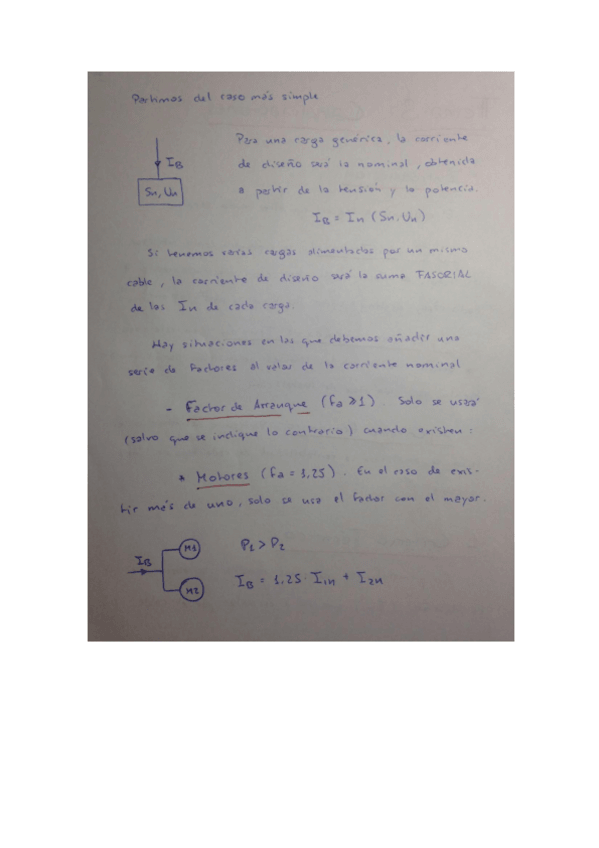 Partimos del caso más simple
Para una carga genérica, la corriente
IB
de diseño será la nominal, obtenida
Sn, Un
a partir de la tensión y la potencia.
IB = In (Sn, Un)
Si tenemos varias cargas alimentadas por un mismo
cable, la corriente de diseño será la suma FASORIAL
de las In de cada carga.
Hay situaciones en las que debemos añadir una
serie de factores al valor de la corriente nominal
- Factor de Arranque (fa ≥ 1). Solo se usará
(salvo que se indique lo contrario) cuando existen:
* Motores (fa = 1,25). En el caso de exis-
tir más de uno, solo se usa el factor con el mayor.
M1
P1 > P2
IB
IB = 1.25 · I1n + I2n
M2